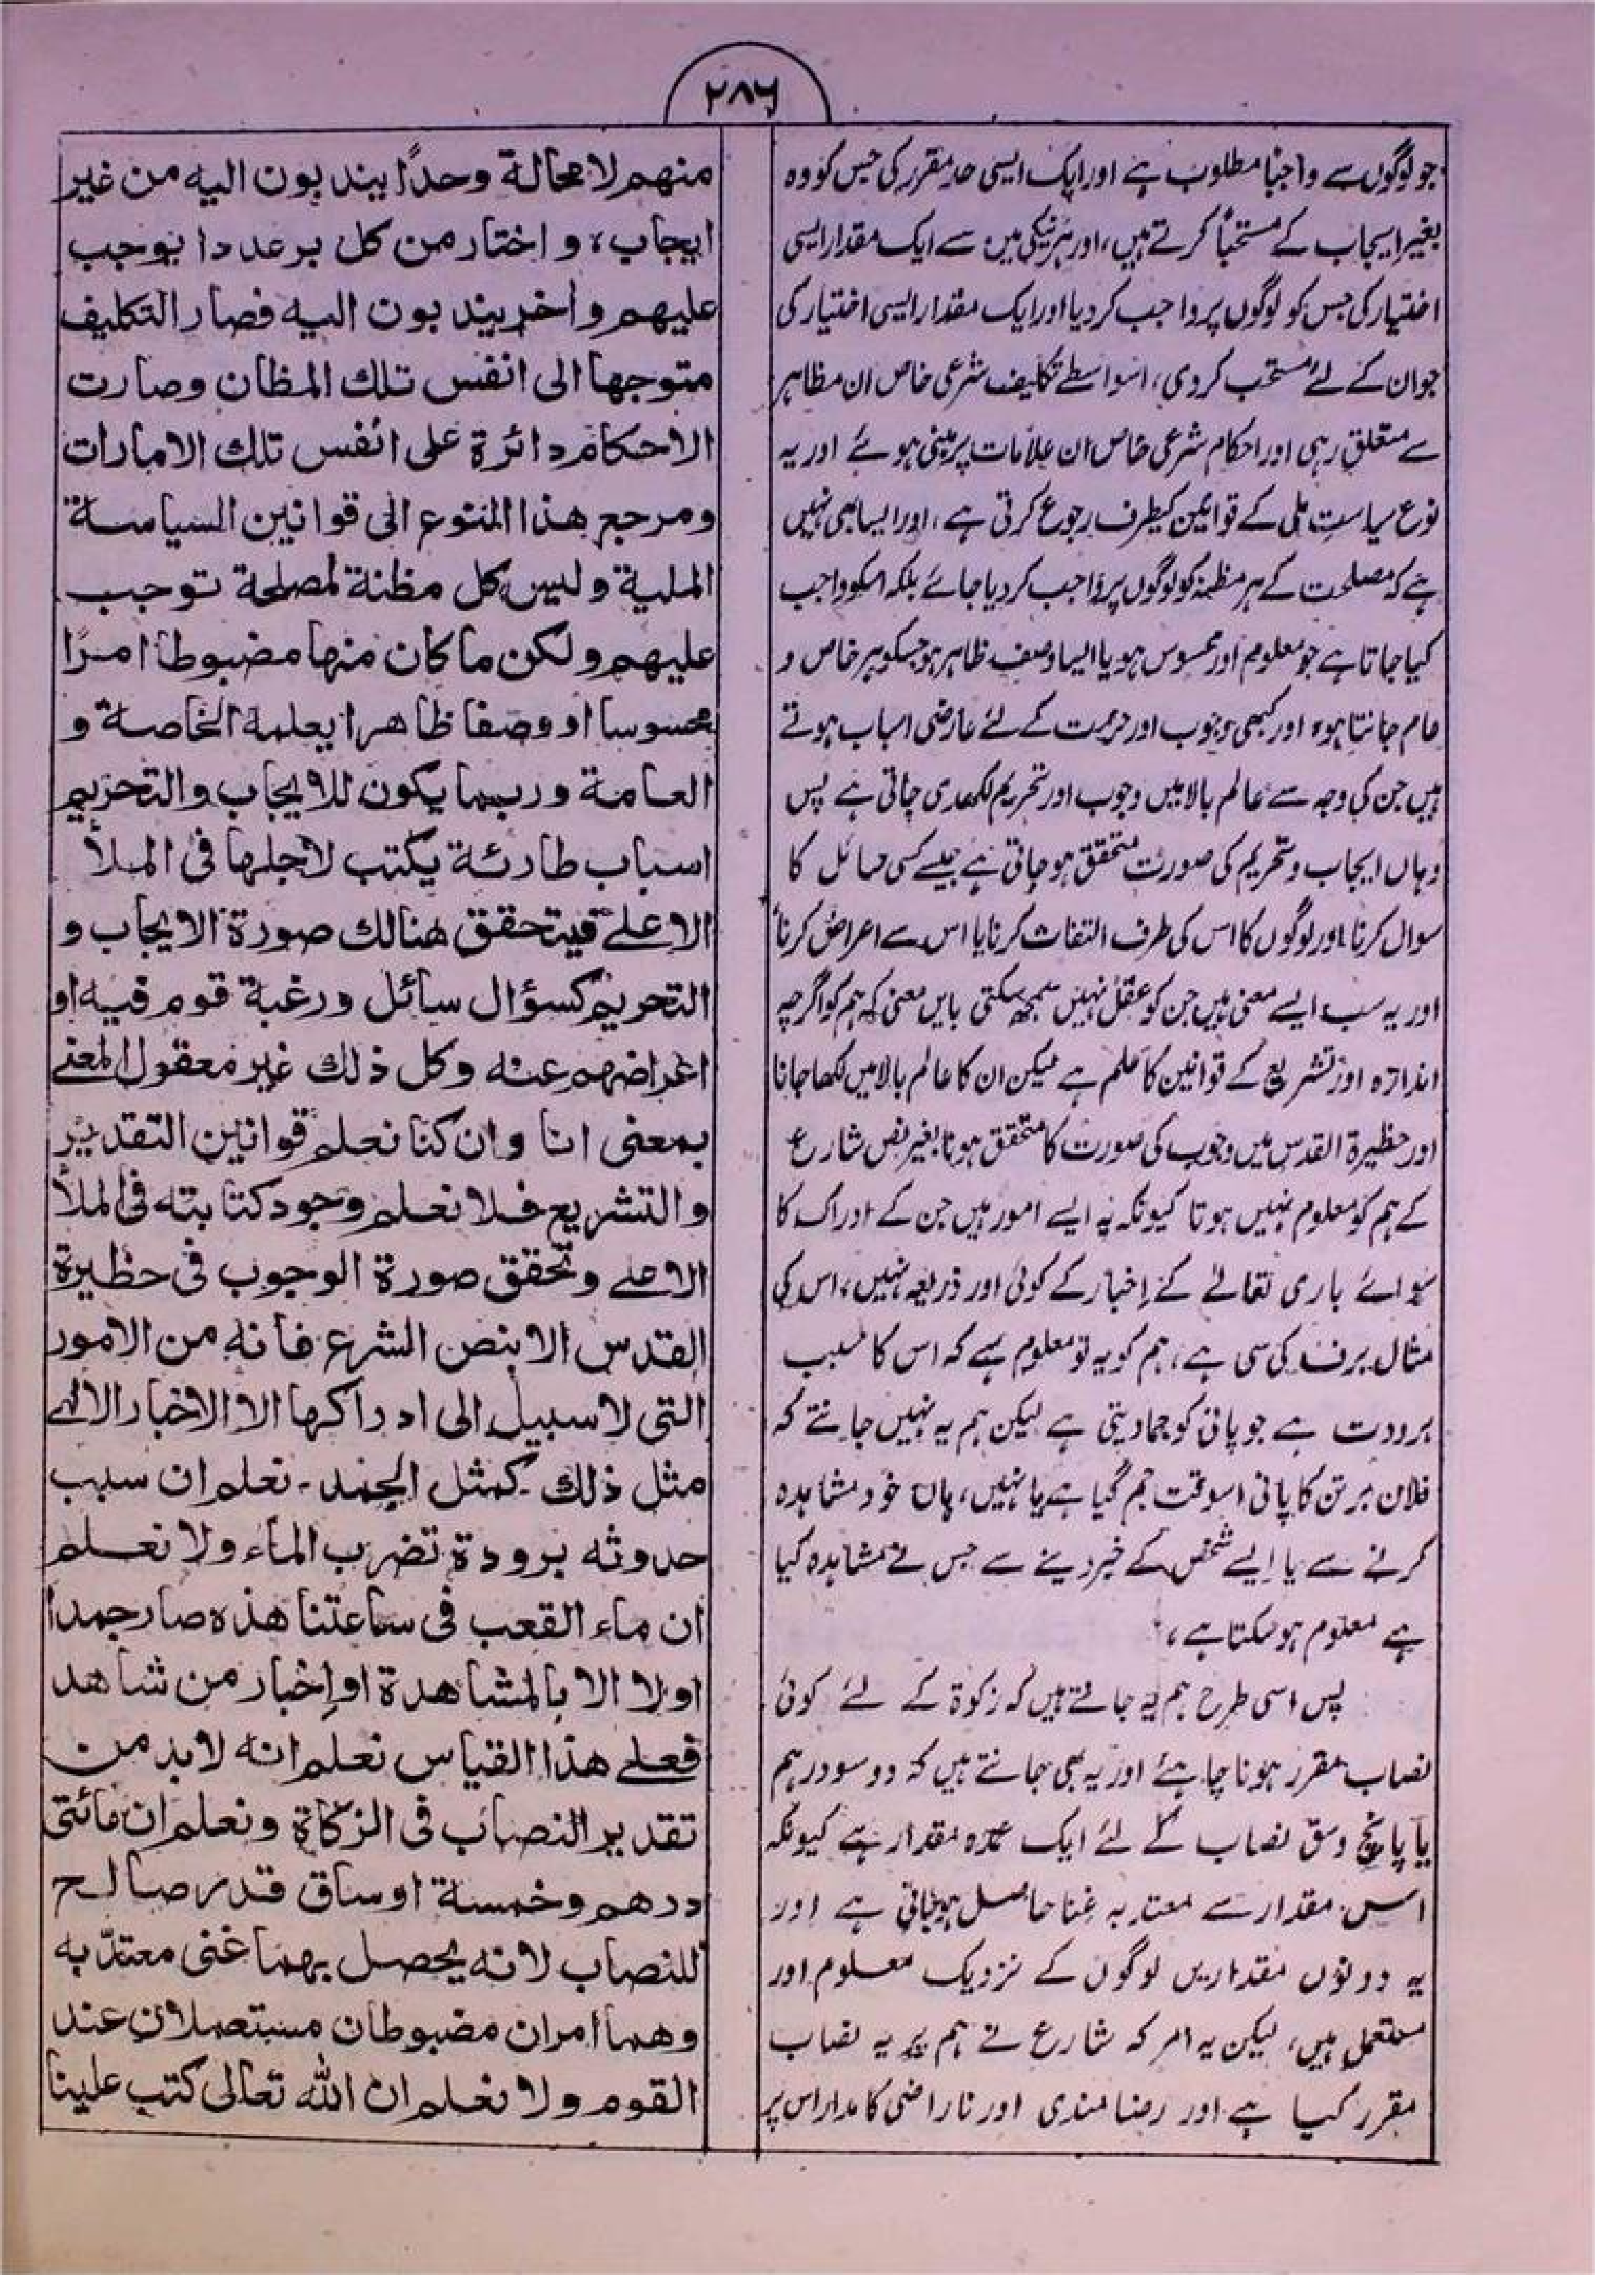 ۲۸۶
جو لوگوں سے واجبًا مطلوب ہے اور ایک ایسی حد مقرر کی جس کو وہ
بغیر ایجاب کے مستحبًا کرتے ہیں، اور ہر نیکی میں سے ایک مقدار ایسی
اختیار کی جس کو لوگوں پر واجب کر دیا اور ایک مقدار ایسی اختیار کی
جو ان کے لئے مستحب کر دی، اسواسطے تکلیف شرعی خاص ان مظاہر
سے متعلق رہی اور احکام شرعی خاص ان علامات پر مبنی ہوئے اور یہ
نوع سیاست ملی کے قوانین کیطرف رجوع کرتی ہے، اور ایسا بھی نہیں
ہے کہ مصلحت کے ہر مظنہ کو لوگوں پر واجب کر دیا جائے بلکہ اسکو واجب
کیا جاتا ہے جو معلوم اور محسوس ہو یا ایسا وصف ظاہر ہو جسکو ہر خاص و
عام جانتا ہو، اور کبھی وجوب اور حرمت کے لئے عارضی اسباب ہوتے
ہیں جن کی وجہ سے عالم بالا میں وجوب اور تحریم لکھدی جاتی ہے پس
وہاں ایجاب و تحریم کی صورت متحقق ہو جاتی ہے جیسے کسی سائل کا
سوال کرنا اور لوگوں کا اس کی طرف التفات کرنا یا اس سے اعراض کرنا
اور یہ سب ایسے معنی ہیں جن کو عقل نہیں سمجھ سکتی بایں معنی کہ ہم کو اگرچہ
اندازہ اور تشریع کے قوانین کا علم ہے لیکن ان کا عالم بالا میں لکھا جانا
اور حظیرۃ القدس میں وجوب کی صورت کا متحقق ہونا بغیر نص شارع
کے ہم کو معلوم نہیں ہوتا کیونکہ یہ ایسے امور ہیں جن کے ادراک کا
سوائے باری تعالےٰ کے اِخبار کے کوئی اور ذریعہ نہیں، اس کی
مثال برف کی سی ہے، ہم کو یہ تو معلوم ہے کہ اس کا سبب
برودت ہے جو پانی کو جما دیتی ہے لیکن ہم یہ نہیں جانتے کہ
فلان برتن کا پانی اسوقت جم گیا ہے یا نہیں، ہاں خود مشاہدہ
کرنے سے یا ایسے شخص کے خبر دینے سے جس نے مشاہدہ کیا
ہے معلوم ہو سکتا ہے،
پس اسی طرح ہم یہ جانتے ہیں کہ زکوٰۃ کے لئے کوئی
نصاب مقرر ہونا چاہئے اور یہ بھی جانتے ہیں کہ دو سو درہم
یا پانچ وسق نصاب کے لئے ایک عمدہ مقدار ہے کیونکہ
اس مقدار سے معتد بہ غنا حاصل ہو جاتی ہے اور
یہ دونوں مقداریں لوگوں کے نزدیک معلوم اور
مستعمل ہیں، لیکن یہ امر کہ شارع نے ہم پر یہ نصاب
مقرر کیا ہے اور رضا مندی اور ناراضی کا مدار اس پر
منهم لا محالة وحدًا يندبون اليه من غير
ايجاب، و اختار من كل بر عددا يوجب
عليهم واخر يندبون اليه فصار التكليف
متوجها الى انفس تلك المظان وصارت
الاحكام دائرة على انفس تلك الامارات
ومرجع هذا النوع الى قوانين السياسة
الملية وليس كل مظنة لمصلحة توجب
عليهم ولكن ما كان منها مضبوطا امرًا
محسوسا او وصفا ظاهرا يعلمه الخاصة و
العامة وربما يكون للايجاب والتحريم
اسباب طارئة يكتب لاجلها فى الملأ
الاعلے فيتحقق هنالك صورة الايجاب و
التحريم كسؤال سائل ورغبة قوم فيه او
اعراضهم عنه وكل ذلك غير معقول المعنے
بمعنى انا وان كنا نعلم قوانين التقدير
والتشريع فلا نعلم وجود كتابته فى الملأ
الاعلے وتحقق صورة الوجوب فى حظيرة
القدس الا بنص الشرع فانه من الامور
التى لا سبيل الى ادراكها الا الاخبار الالهے
مثل ذلك كمثل الجمد - نعلم ان سبب
حدوثه برودة تضرب الماء ولا نعلم
ان ماء القعب فى ساعتنا هذه صار جمدا
اولا الا بالمشاهدة او إخبار من شاهد
فعلے هذا القياس نعلم انه لابد من
تقدير النصاب فى الزكاة ونعلم ان مائتى
درهم وخمسة اوساق قدر صالح
للنصاب لانه يحصل بهما غنى معتدّ به
وهما امران مضبوطان مستعملان عند
القوم ولا نعلم ان الله تعالى كتب علينا